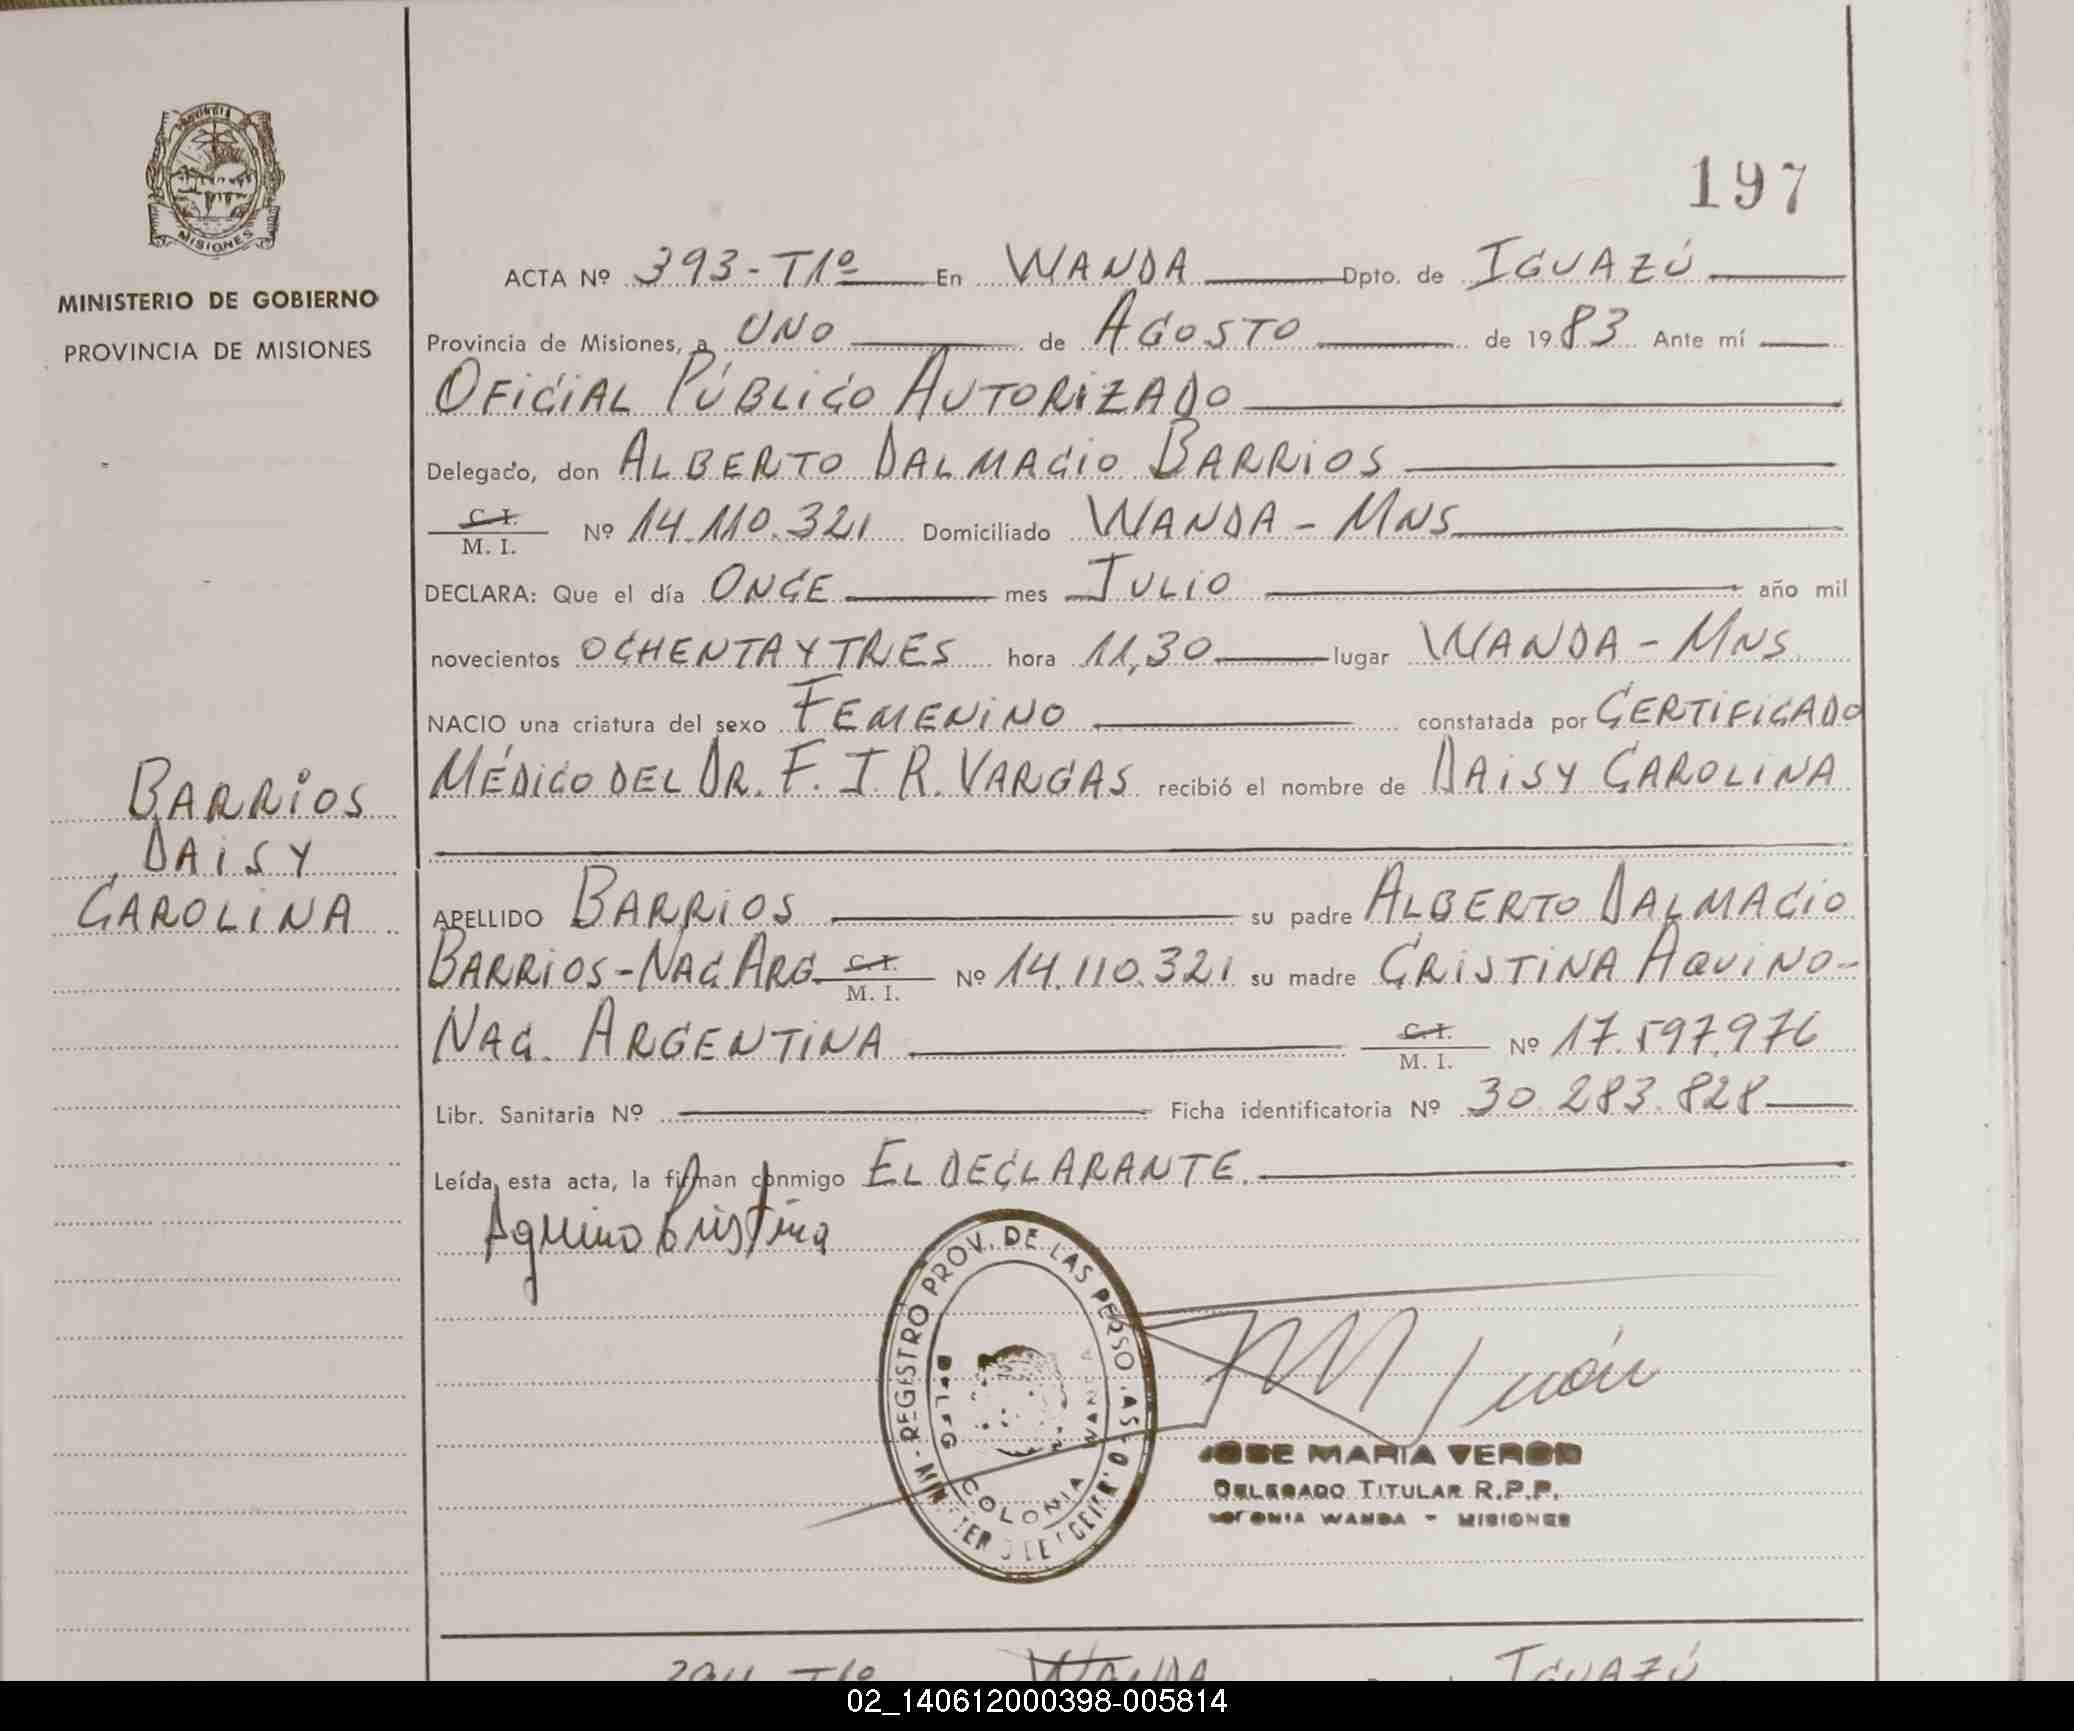 PROVINCIA
MISIONES
MINISTERIO DE GOBIERNO
PROVINCIA DE MISIONES
197
ACTA Nº 393-T1º En WANDA Dpto. de IGUAZÚ
Provincia de Misiones, a UNO de AGOSTO de 1983 Ante mí
OFICIAL PÚBLICO AUTORIZADO
Delegado, don ALBERTO DALMACIO BARRIOS
C. I.
M. I. Nº 14.110.321 Domiciliado WANDA - MNS
DECLARA: Que el día ONCE mes JULIO año mil
novecientos OCHENTA Y TRES hora 11,30 lugar WANDA - MNS
NACIO una criatura del sexo FEMENINO constatada por CERTIFICADO
MÉDICO DEL DR. F. J. R. VARGAS recibió el nombre de DAISY CAROLINA
BARRIOS
DAISY
CAROLINA
APELLIDO BARRIOS su padre ALBERTO DALMACIO
BARRIOS-NAC ARG C. I.
M. I. Nº 14.110.321 su madre CRISTINA AQUINO-
NAC. ARGENTINA C. I.
M. I. Nº 17.597.976
Libr. Sanitaria Nº Ficha identificatoria Nº 30.283.828
Leída esta acta, la firman conmigo EL DECLARANTE.
Aquino Cristina
REGISTRO PROV. DE LAS PERSONAS
COLONIA WANDA
JOSE MARIA VERON
DELEGADO TITULAR R.P.P.
COLONIA WANDA - MISIONES
WANDA IGUAZÚ
02_140612000398-005814